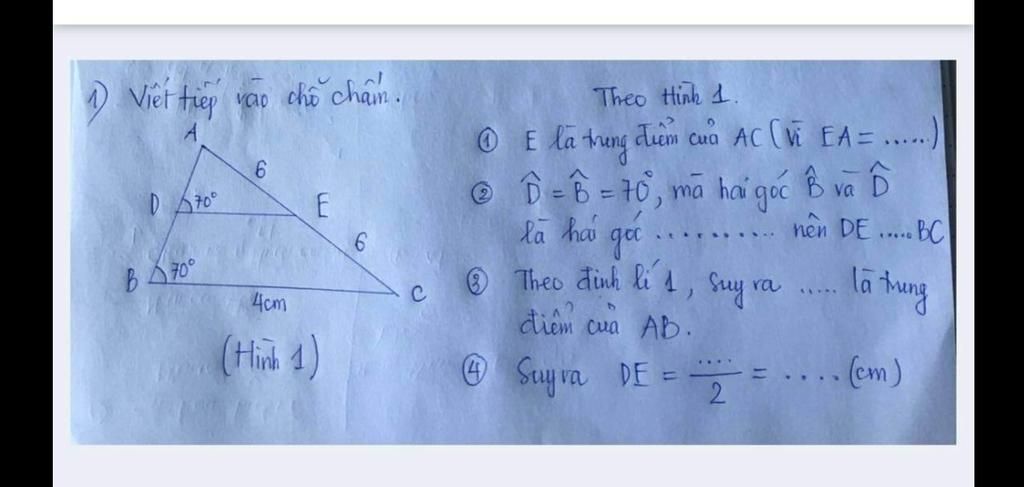 1) Viết tiếp vào chỗ chấm.
A
6
D 70° E
6
B 70°
4cm C
(Hình 1)
Theo Hình 1.
① E là trung điểm của AC (vì EA = ......)
② D̂ = B̂ = 70°, mà hai góc B̂ và D̂
là hai góc .......... nên DE ..... BC
③ Theo định lí 1, suy ra ..... là trung
điểm của AB.
④ Suy ra DE = ..../2 = .... (cm)